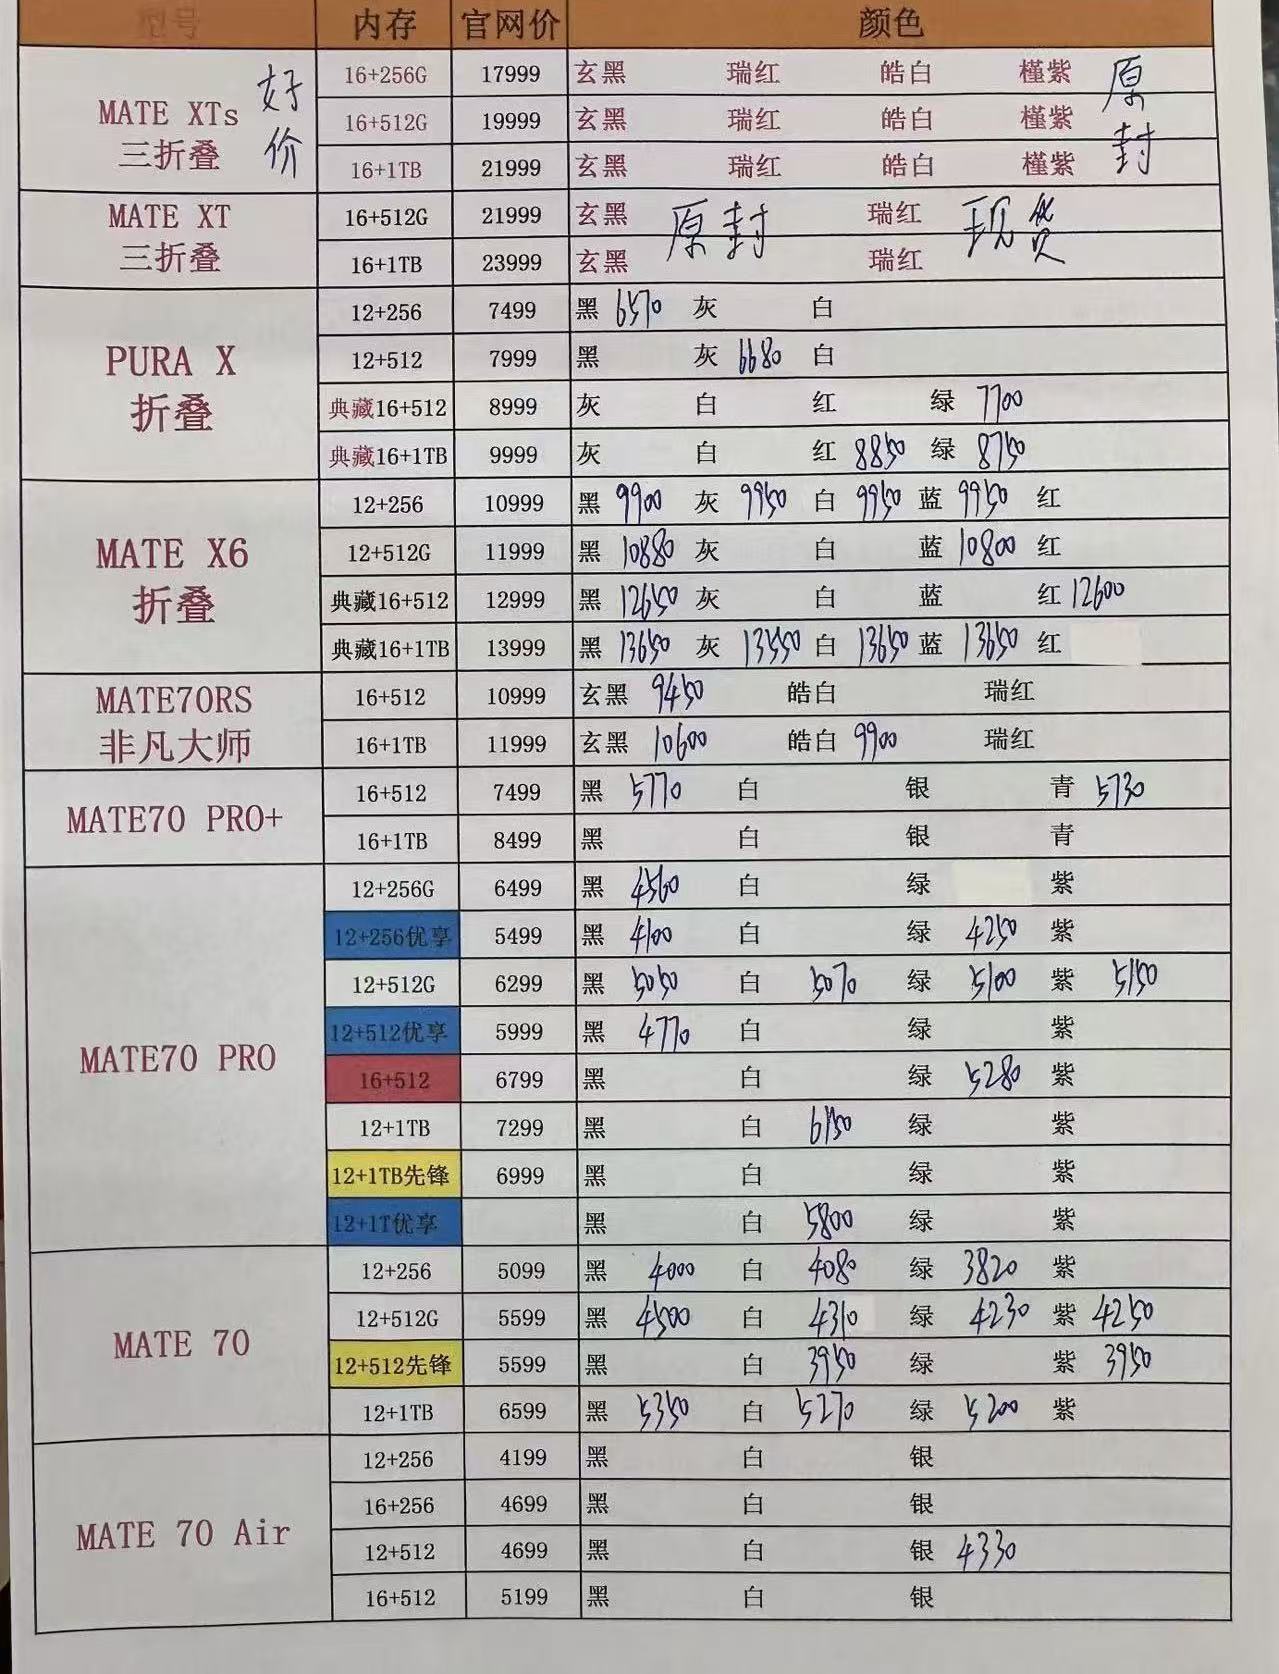 型号 内存 官网价 颜色
MATE XTs 三折叠 好价 16+256G 17999 玄黑 瑞红 皓白 槿紫 原封
16+512G 19999 玄黑 瑞红 皓白 槿紫
16+1TB 21999 玄黑 瑞红 皓白 槿紫
MATE XT 三折叠 16+512G 21999 玄黑 原封 瑞红 现货
16+1TB 23999 玄黑 瑞红
PURA X 折叠 12+256 7499 黑 6570 灰 白
12+512 7999 黑 灰 6680 白
典藏16+512 8999 灰 白 红 绿 7700
典藏16+1TB 9999 灰 白 红 8850 绿 8750
MATE X6 折叠 12+256 10999 黑 9900 灰 9950 白 9950 蓝 9950 红
12+512G 11999 黑 10880 灰 白 蓝 10800 红
典藏16+512 12999 黑 12650 灰 白 蓝 红 12600
典藏16+1TB 13999 黑 13650 灰 13550 白 13650 蓝 13650 红
MATE70RS 非凡大师 16+512 10999 玄黑 9450 皓白 瑞红
16+1TB 11999 玄黑 10600 皓白 9900 瑞红
MATE70 PRO+ 16+512 7499 黑 5770 白 银 青 5730
16+1TB 8499 黑 白 银 青
MATE70 PRO 12+256G 6499 黑 4560 白 绿 紫
12+256优享 5499 黑 4100 白 绿 4250 紫
12+512G 6299 黑 5050 白 5070 绿 5100 紫 5150
12+512优享 5999 黑 4770 白 绿 紫
16+512 6799 黑 白 绿 5280 紫
12+1TB 7299 黑 白 6150 绿 紫
12+1TB先锋 6999 黑 白 绿 紫
12+1T优享 黑 白 5800 绿 紫
MATE 70 12+256 5099 黑 4000 白 4080 绿 3820 紫
12+512G 5599 黑 4500 白 4310 绿 4230 紫 4250
12+512先锋 5599 黑 白 3950 绿 紫 3950
12+1TB 6599 黑 5350 白 5270 绿 5200 紫
MATE 70 Air 12+256 4199 黑 白 银
16+256 4699 黑 白 银
12+512 4699 黑 白 银 4330
16+512 5199 黑 白 银